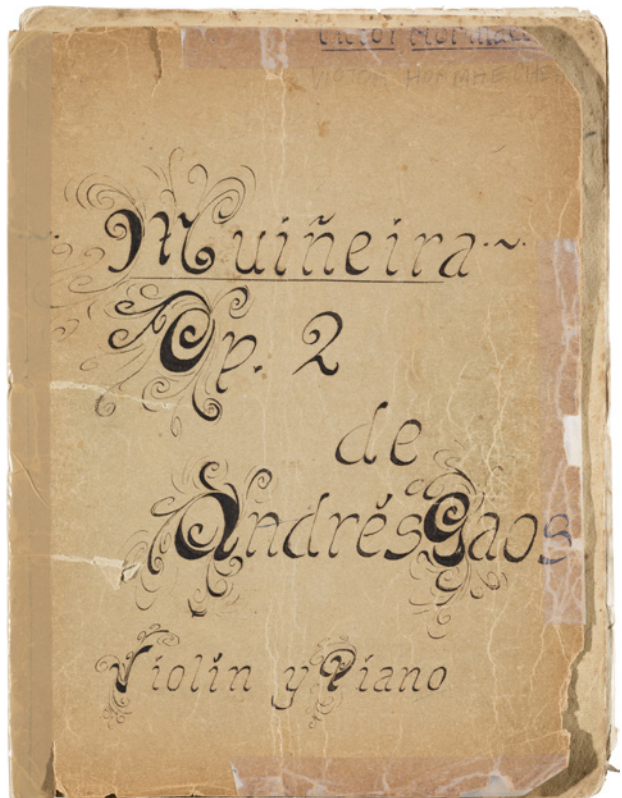 Victor
VICTOR
Muiñeira
Op. 2
de
Andrés Gaos
Violín y Piano